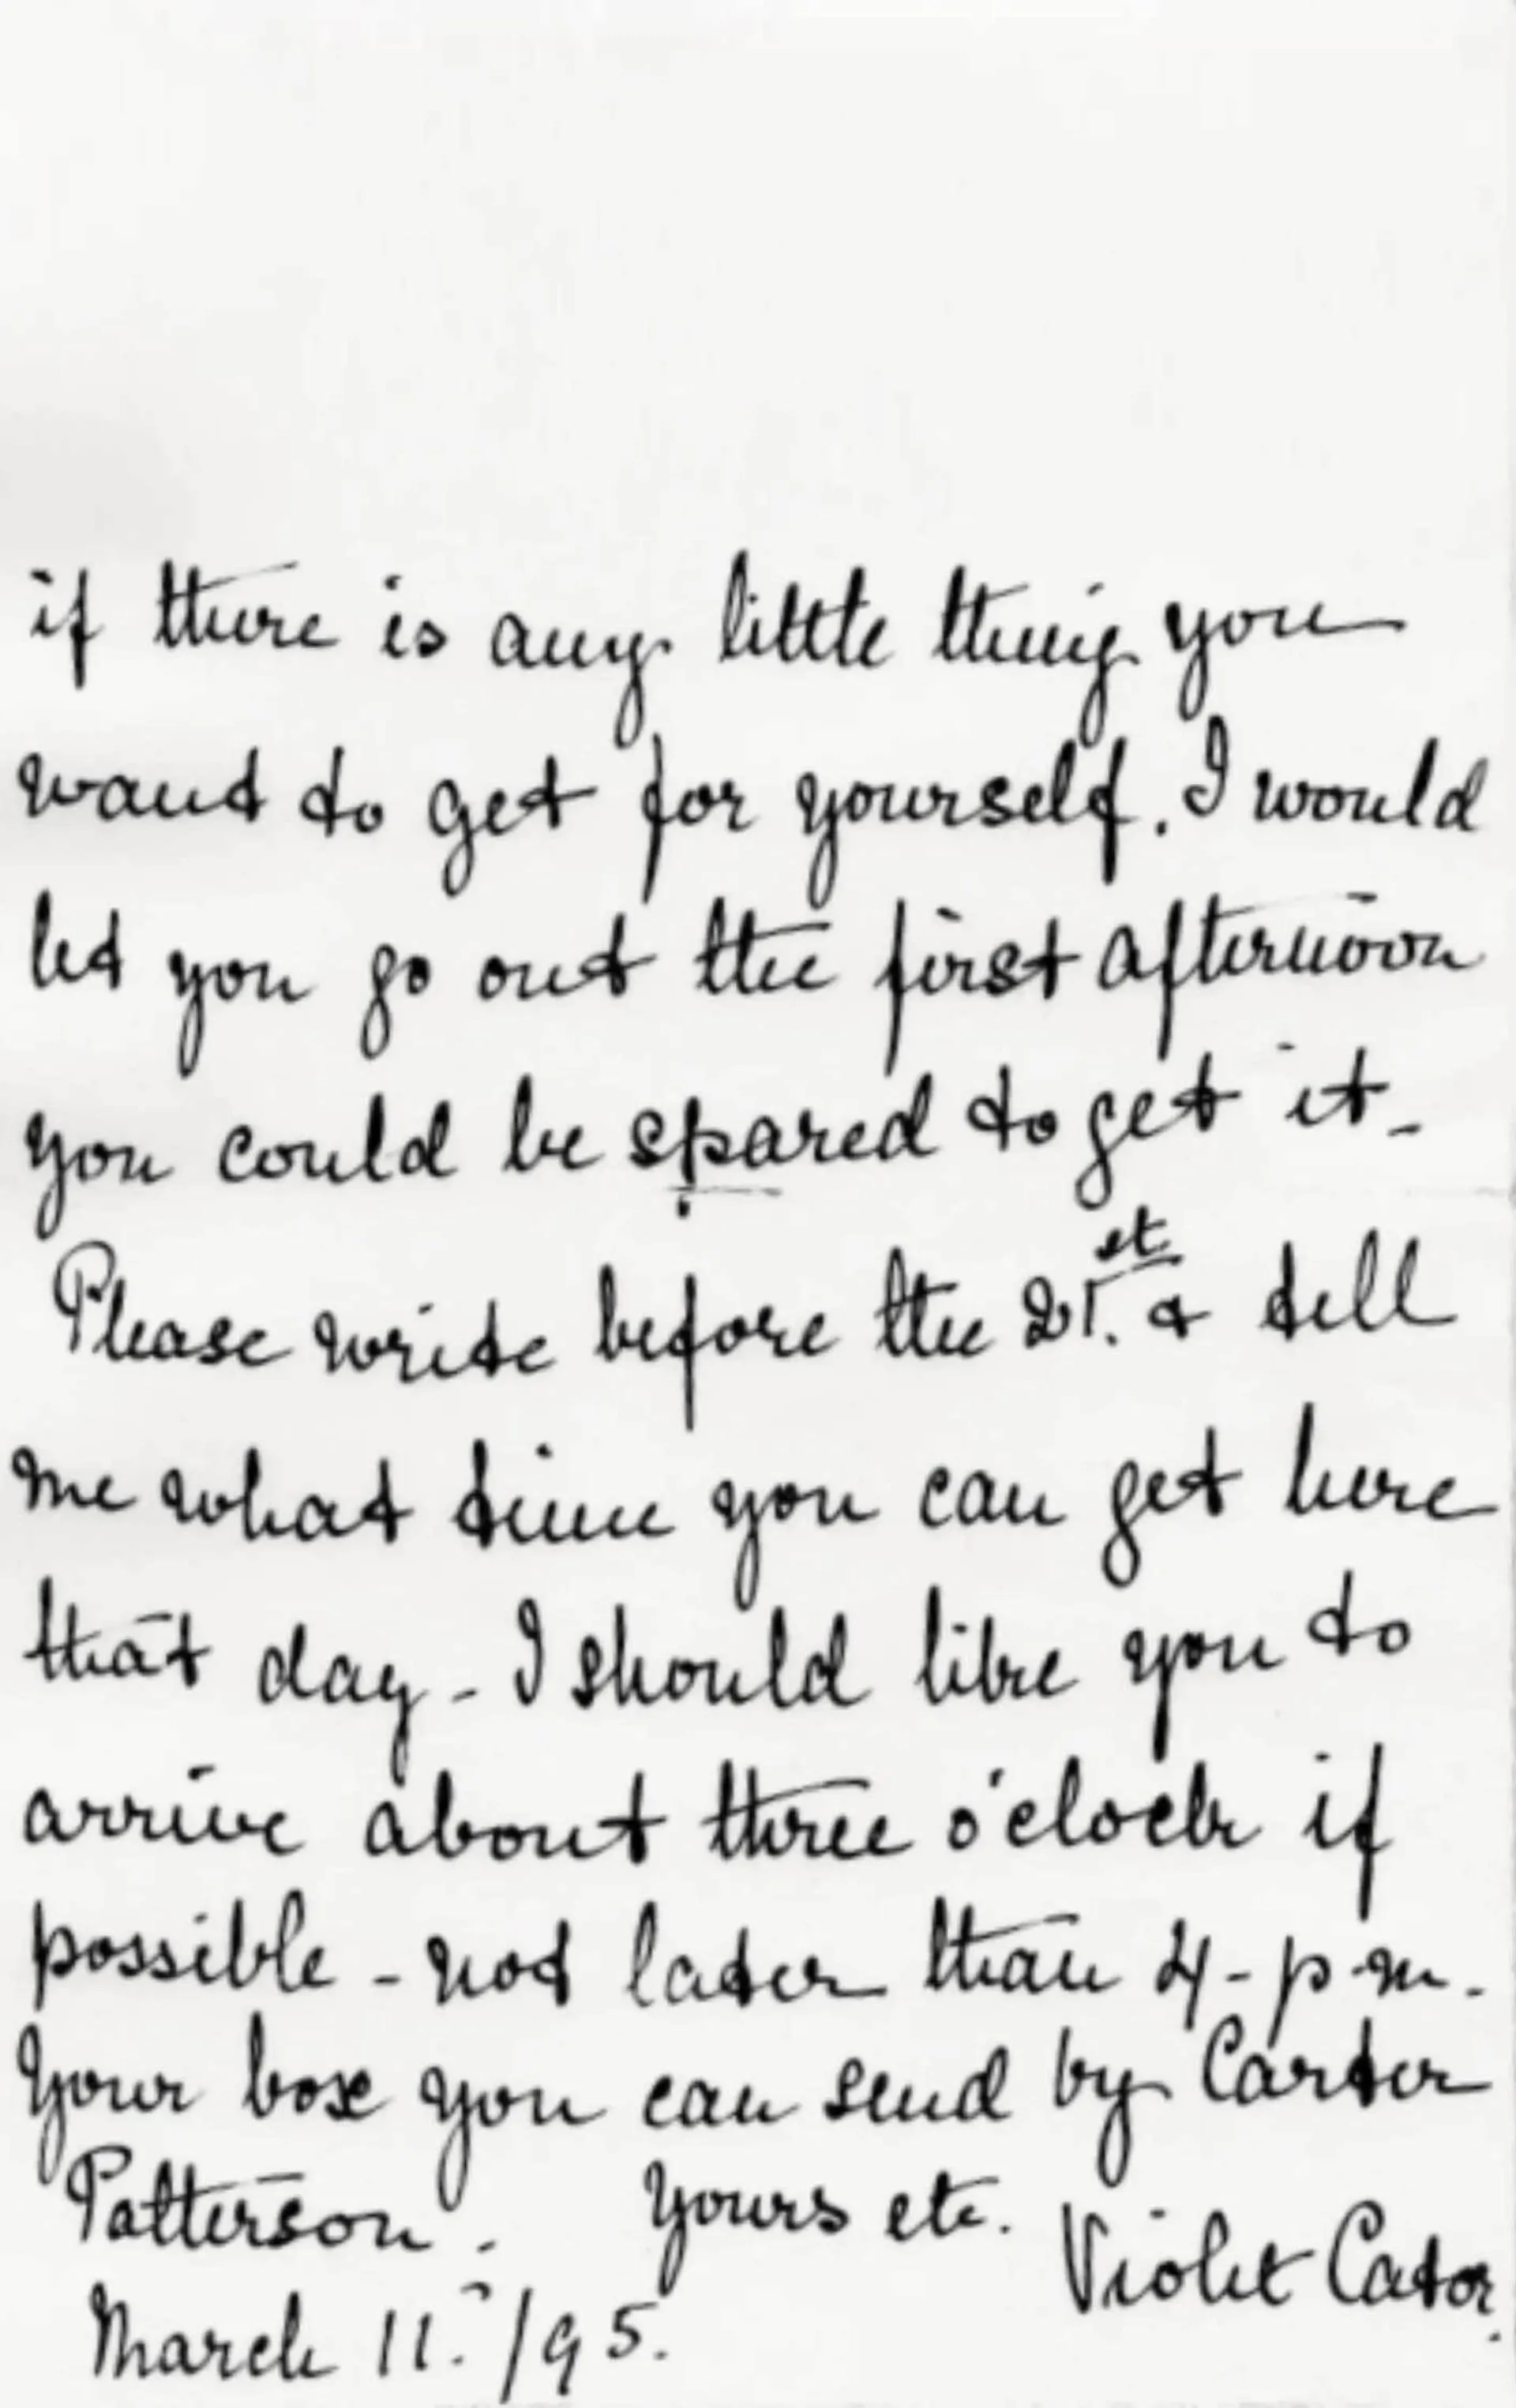 if there is any little thing you
want to get for yourself. I would
let you go out the first afternoon
you could be spared to get it -
Please write before the 21.st & tell
me what time you can get here
that day - I should like you to
arrive about three o'clock if
possible - not later than 4 - p.m.
Your box you can send by Carter
Patterson. Yours etc. Violet Cator.
March 11. /95.